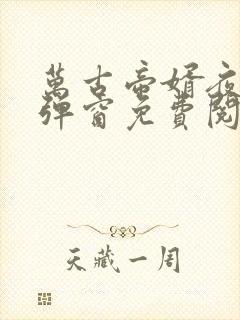 萬古帝婿夜
彈窗免費閱
天藏一周